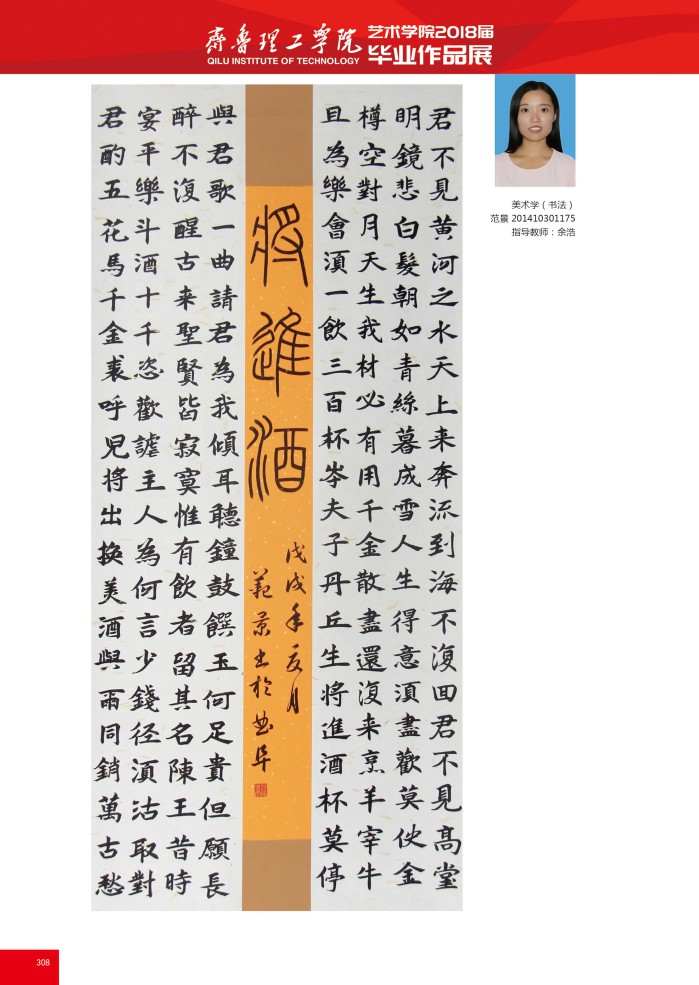 齊魯理工學院
QILU INSTITUTE OF TECHNOLOGY
艺术学院2018届
毕业作品展
美术学（书法）
范景 201410301175
指导教师：余浩
君不見黄河之水天上来奔流到海不復回君不見高堂
明鏡悲白髮朝如青絲暮成雪人生得意須盡歡莫使金
樽空對月天生我材必有用千金散盡還復来烹羊宰牛
且為樂會須一飲三百杯岑夫子丹丘生将進酒杯莫停
将進酒
戊戌年夏月
範景書於曲阜
與君歌一曲請君為我傾耳聽鐘鼓饌玉何足貴但願長
醉不復醒古来聖賢皆寂寞惟有飲者留其名陳王昔時
宴平樂斗酒十千恣歡謔主人為何言少錢径須沽取對
君酌五花馬千金裘呼兒将出换美酒與爾同銷萬古愁
308